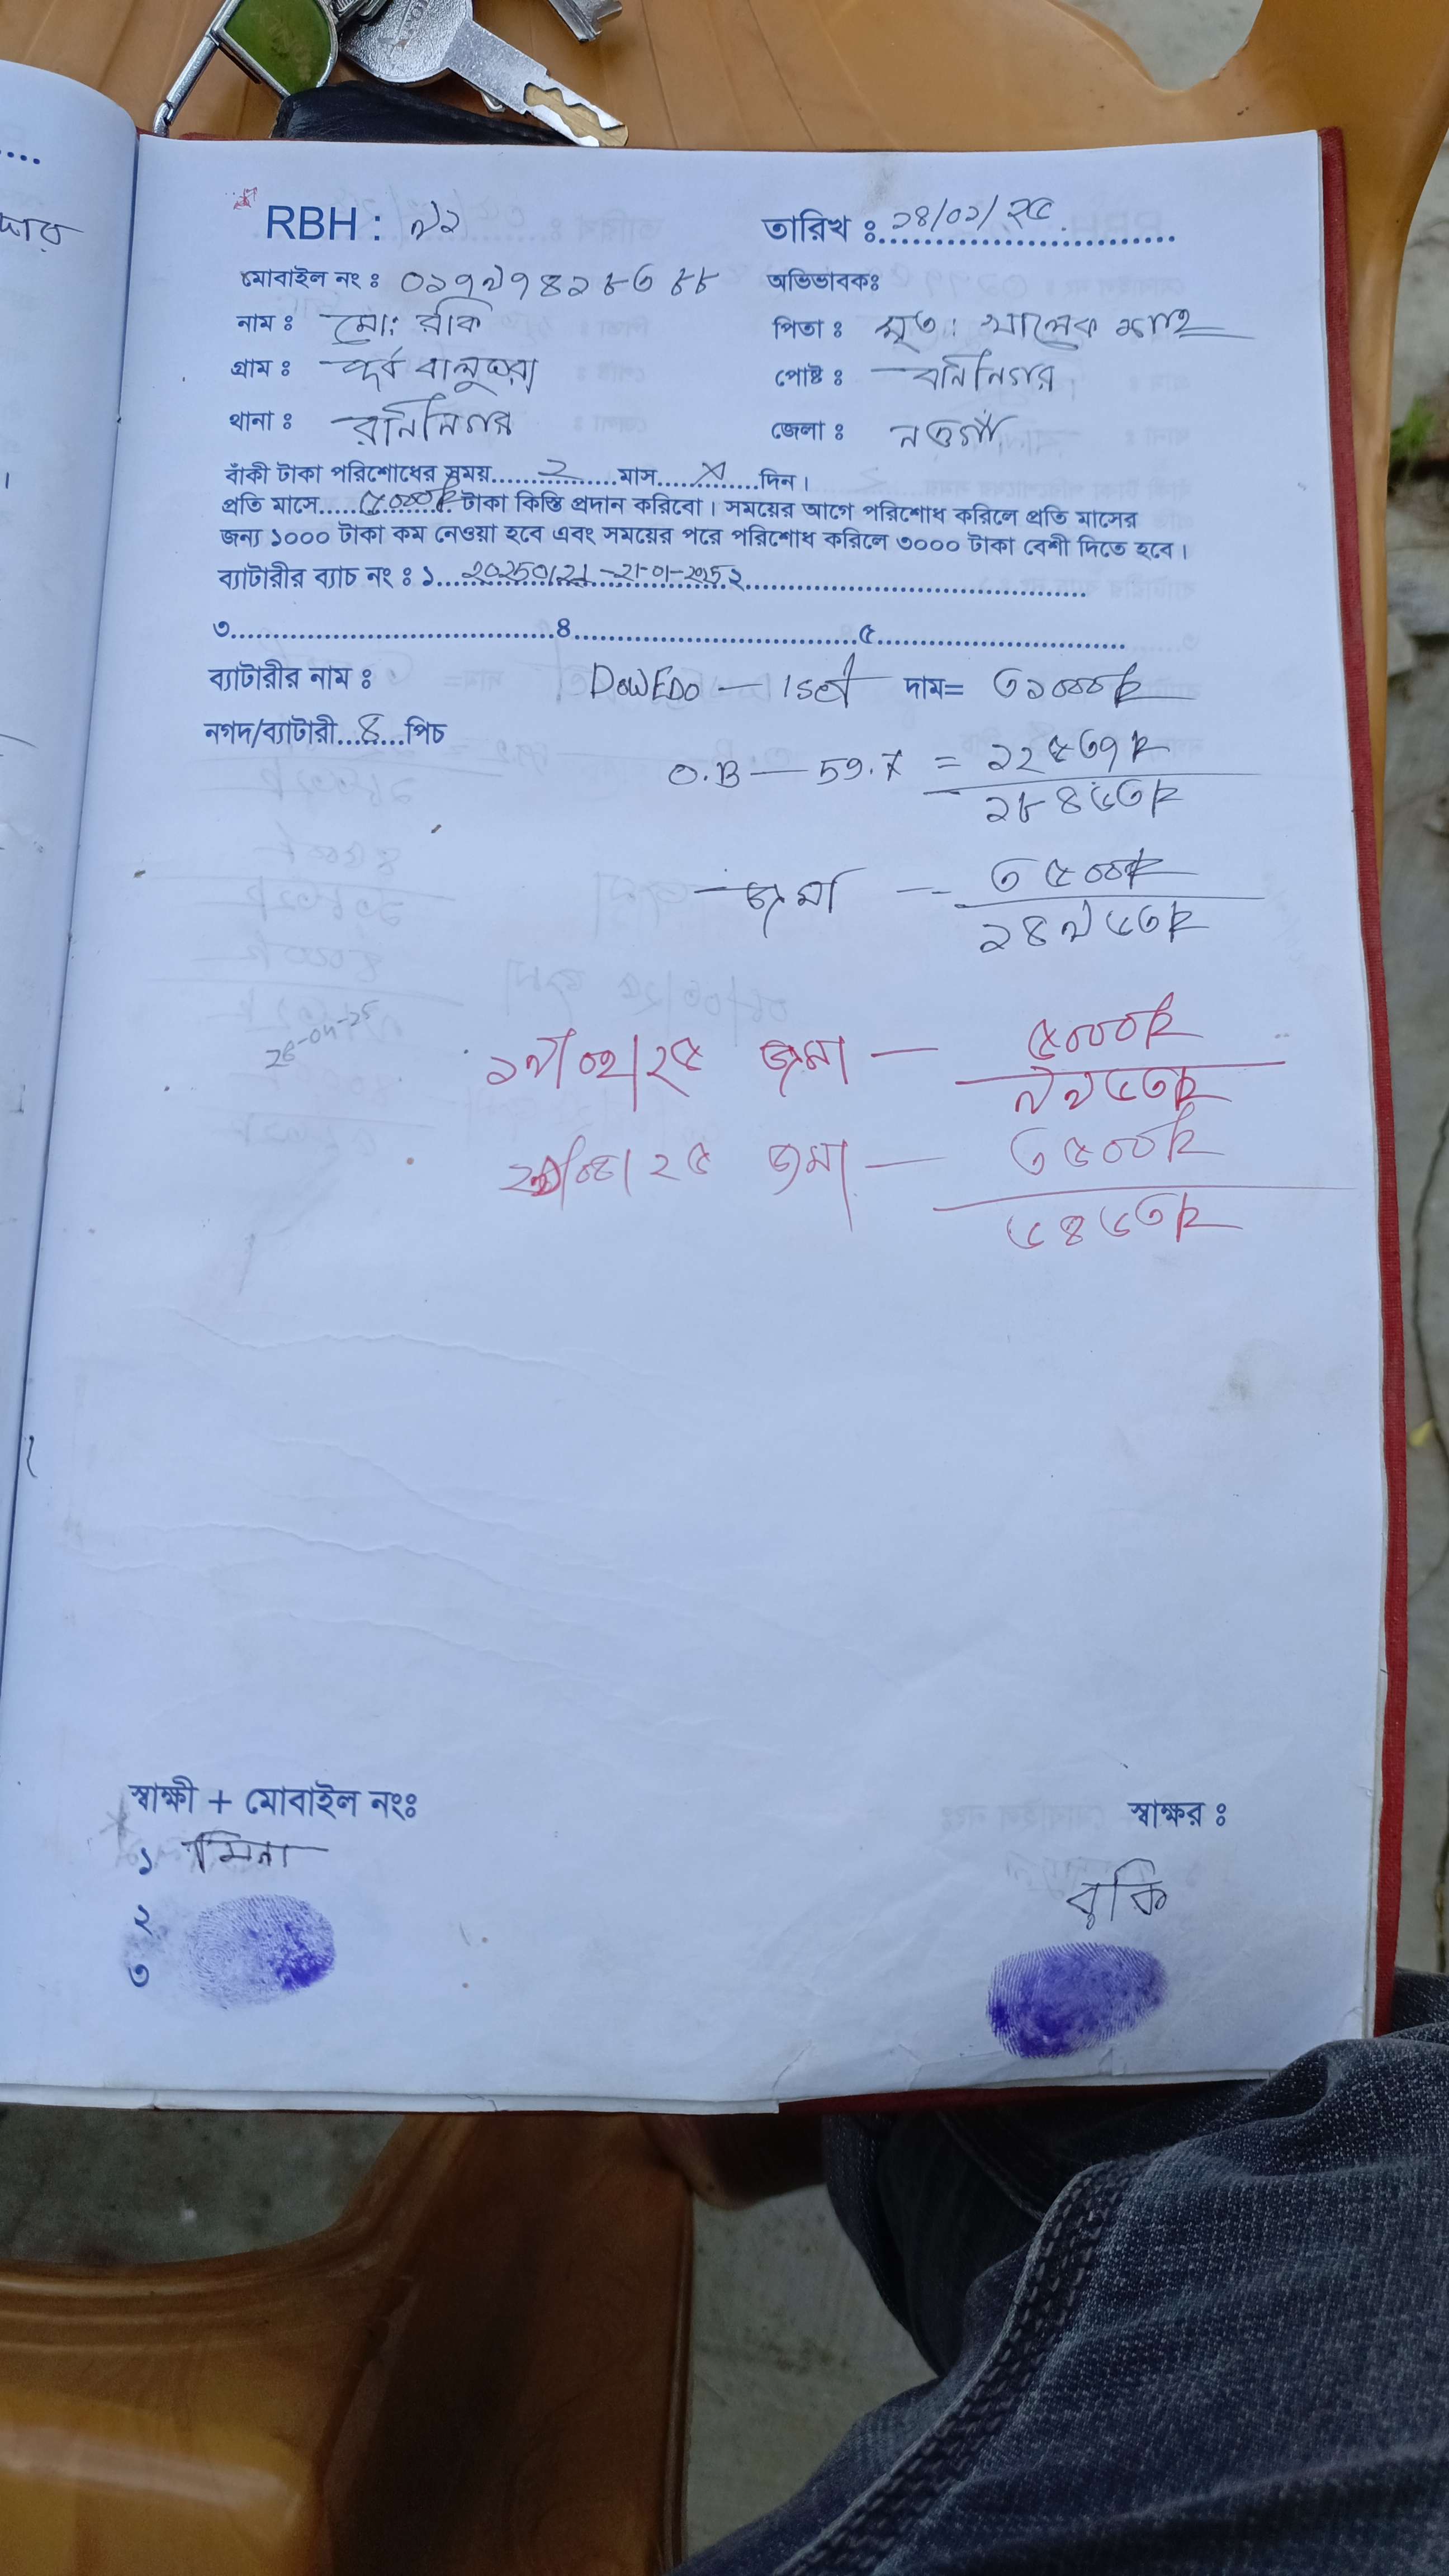 RBH : ৯১
তারিখ ঃ ২৪/০২/২৫
মোবাইল নং ঃ ০১৭৯৭৪২৮৩৮৮
অভিভাবকঃ
নাম ঃ মো: রকি
পিতা ঃ মৃত: খালেক
গ্রাম ঃ পূর্ব বালুভরা
পোষ্ট ঃ রানিনগর
থানা ঃ রানিনগর
জেলা ঃ নওগাঁ
বাঁকী টাকা পরিশোধের সময়......২......মাস.....X.....দিন।
প্রতি মাসে.....৫০০০৳.....টাকা কিস্তি প্রদান করিবো। সময়ের আগে পরিশোধ করিলে প্রতি মাসের
জন্য ১০০০ টাকা কম নেওয়া হবে এবং সময়ের পরে পরিশোধ করিলে ৩০০০ টাকা বেশী দিতে হবে।
ব্যাটারীর ব্যাচ নং ঃ ১...20250121-21-01-2025 ২..........
৩..........৪..........৫..........
ব্যাটারীর নাম ঃ DOWEDO — 1set দাম= ৩১০০০৳
নগদ/ব্যাটারী...৪...পিচ
O.B — 59.7 = ১২৫৩৭৳
১৮৪৬৩৳
জমা — ৩৫০০৳
১৪৯৬৩৳
28-04-25
১৯/০২/২৫ জমা — ৫০০০৳
৯৯৬৩৳
/০৪/২৫ জমা — ৩৫০০৳
৬৪৬৩৳
স্বাক্ষী + মোবাইল নংঃ
স্বাক্ষর ঃ
১ মিনা
রকি
২
৩